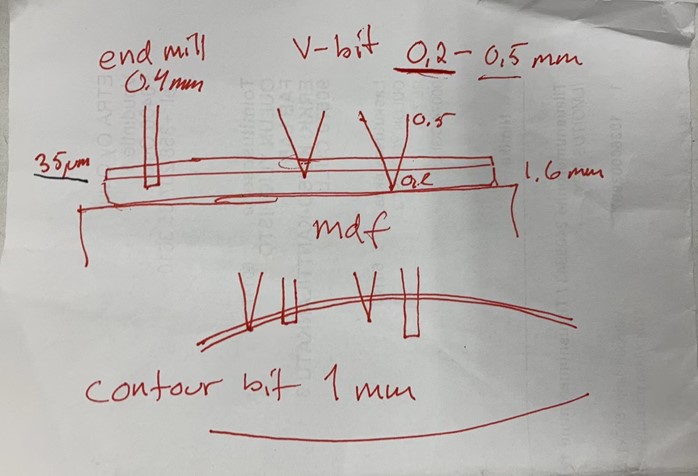 end mill
0.4mm
V-bit 0,2 - 0,5 mm
0.5
35µm
0.2
1.6 mm
mdf
contour bit 1 mm